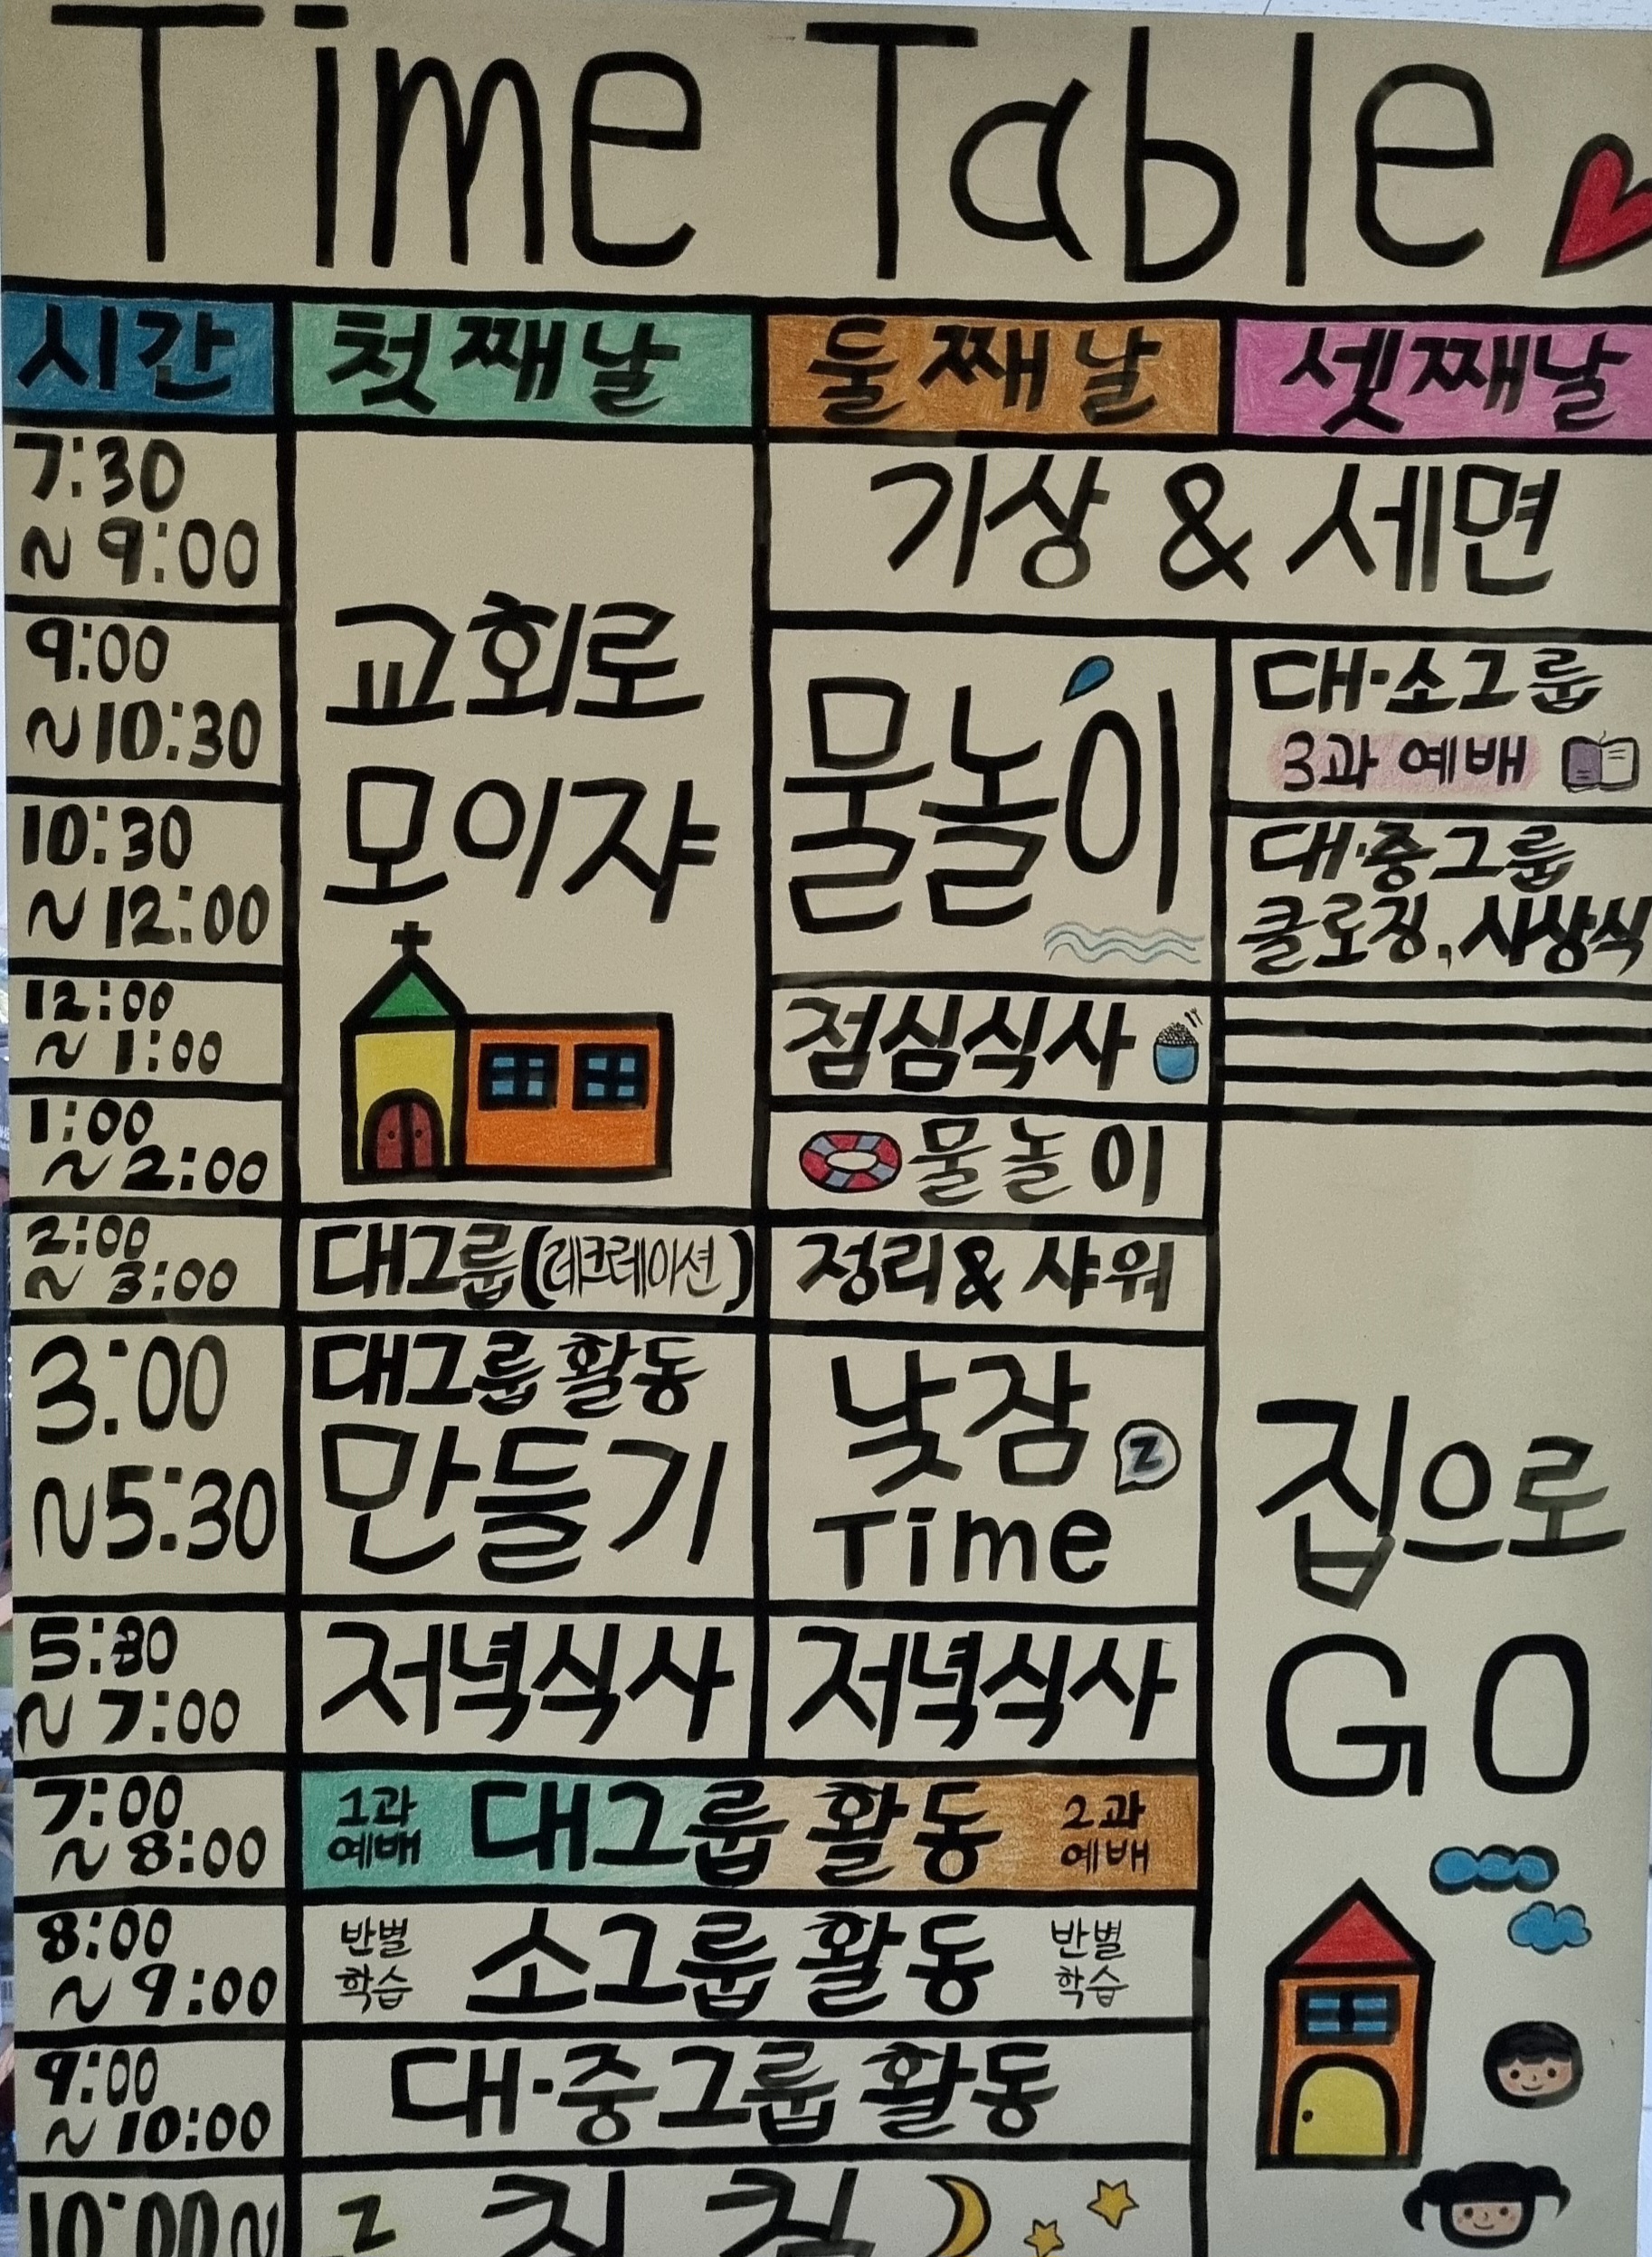 Time Table
시간 첫째날 둘째날 셋째날
7:30
~ 9:00
기상 & 세면
9:00
~10:30
교회로
모이쟈
물놀이
대·소그룹
3과 예배
10:30
~ 12:00
대·중그룹
클로징, 시상식
12:00
~ 1:00
점심식사
1:00
~ 2:00
물놀이
2:00
~ 3:00
대그룹(레크레이션)
정리 & 샤워
3:00
~5:30
대그룹 활동
만들기
낮잠
Time
Z
집으로
GO
5:30
~ 7:00
저녁식사
저녁식사
7:00
~ 8:00
1과
예배
대그룹 활동
2과
예배
8:00
~ 9:00
반별
학습
소그룹 활동
반별
학습
9:00
~ 10:00
대·중그룹 활동
10:00~
Z